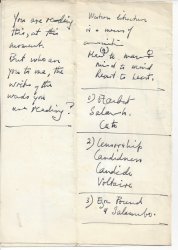 You are reading
this, at this
moment.
But who are
you to me, the
writer of the
words you
are reading?
Western literature
is a means of
Man to man
mind to mind
Heart to heart.
1) Flaubert
Salambo.
Cato
2) Censorship
Candidness
Candide
Voltaire
3) Ezra Pound
& Salambo.